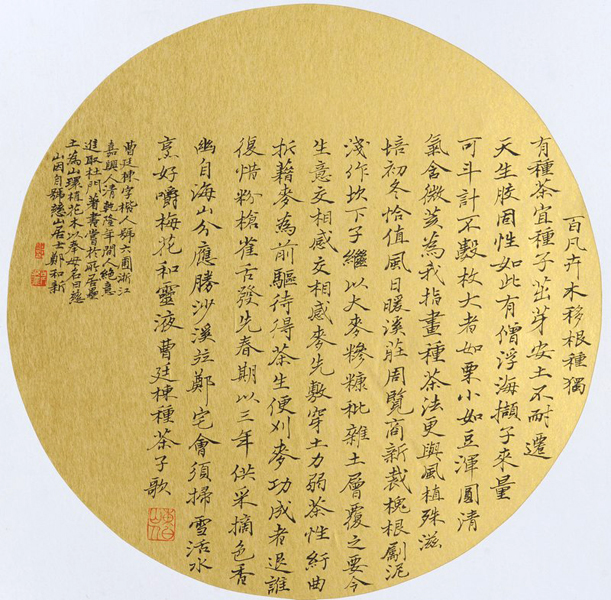 百凡卉木移根種獨
有種茶宜種子茁芽安土不耐遷
天生胶固性如此有僧浮海擷子來量
可斗計不數枚大者如栗小如豆渾圓清
氣含微芳為我指畫種茶法更與風植殊滋
培初冬恰值風日暖溪莊周覽商新裁槐根劚泥
淺作坎下子繼以大麥糝糠秕雜土層覆之要令
生意交相感交相感麥先敷穿土力弱茶性紆曲
折藉麥為前驅待得茶生便刈麥功成者退誰
復惜粉槍雀舌發先春期以三年供采摘色香
幽自海山分應勝沙溪並鄭宅會須掃雪活水
烹好嚼梅花和靈液 曹廷棟種茶子歌
曹廷棟字楷人號六圃浙江
嘉興人清乾隆年間絕意
進取杜門著書嘗於所居壘
土為山環植花木以奉母名曰慈
山因自號慈山居士鄭和新